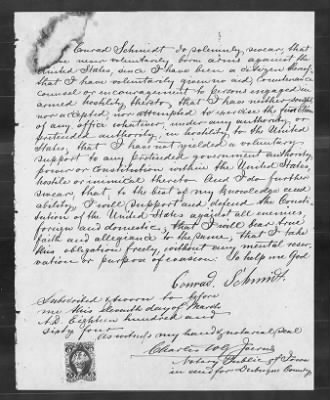 Conrad Schmidt do solemnly swear, that
I have never voluntarily borne arms against the
United States, since I have been a citizen thereof,
that I have voluntarily given no aid, countenance
counsel or encouragement to persons engaged in
armed hostility thereto, that I have neither sought
nor accepted, nor attempted to exercise the functions
of any office whatever, under any authority, or
pretended authority, in hostility to the United
States, that I have not yielded a voluntary
support to any pretended government authority,
power or constitution within the United States,
hostile or inimical thereto And I do further
swear, that, to the best of my knowledge and
ability, I will support and defend the Consti-
tution of the United States against all enemies,
foreign and domestic, that I will bear true
faith and allegiance to the same, that I take
this obligation freely, without any mental reser-
vation or purpose of evasion. So help me God
Conrad Schmidt.
Subscribed & sworn to before
me this eleventh day of March
AD Eighteen hundred and
sixty four
As witness my hand & notarial Seal
Charles
Notary Public of Iowa
in and for Dubuque County